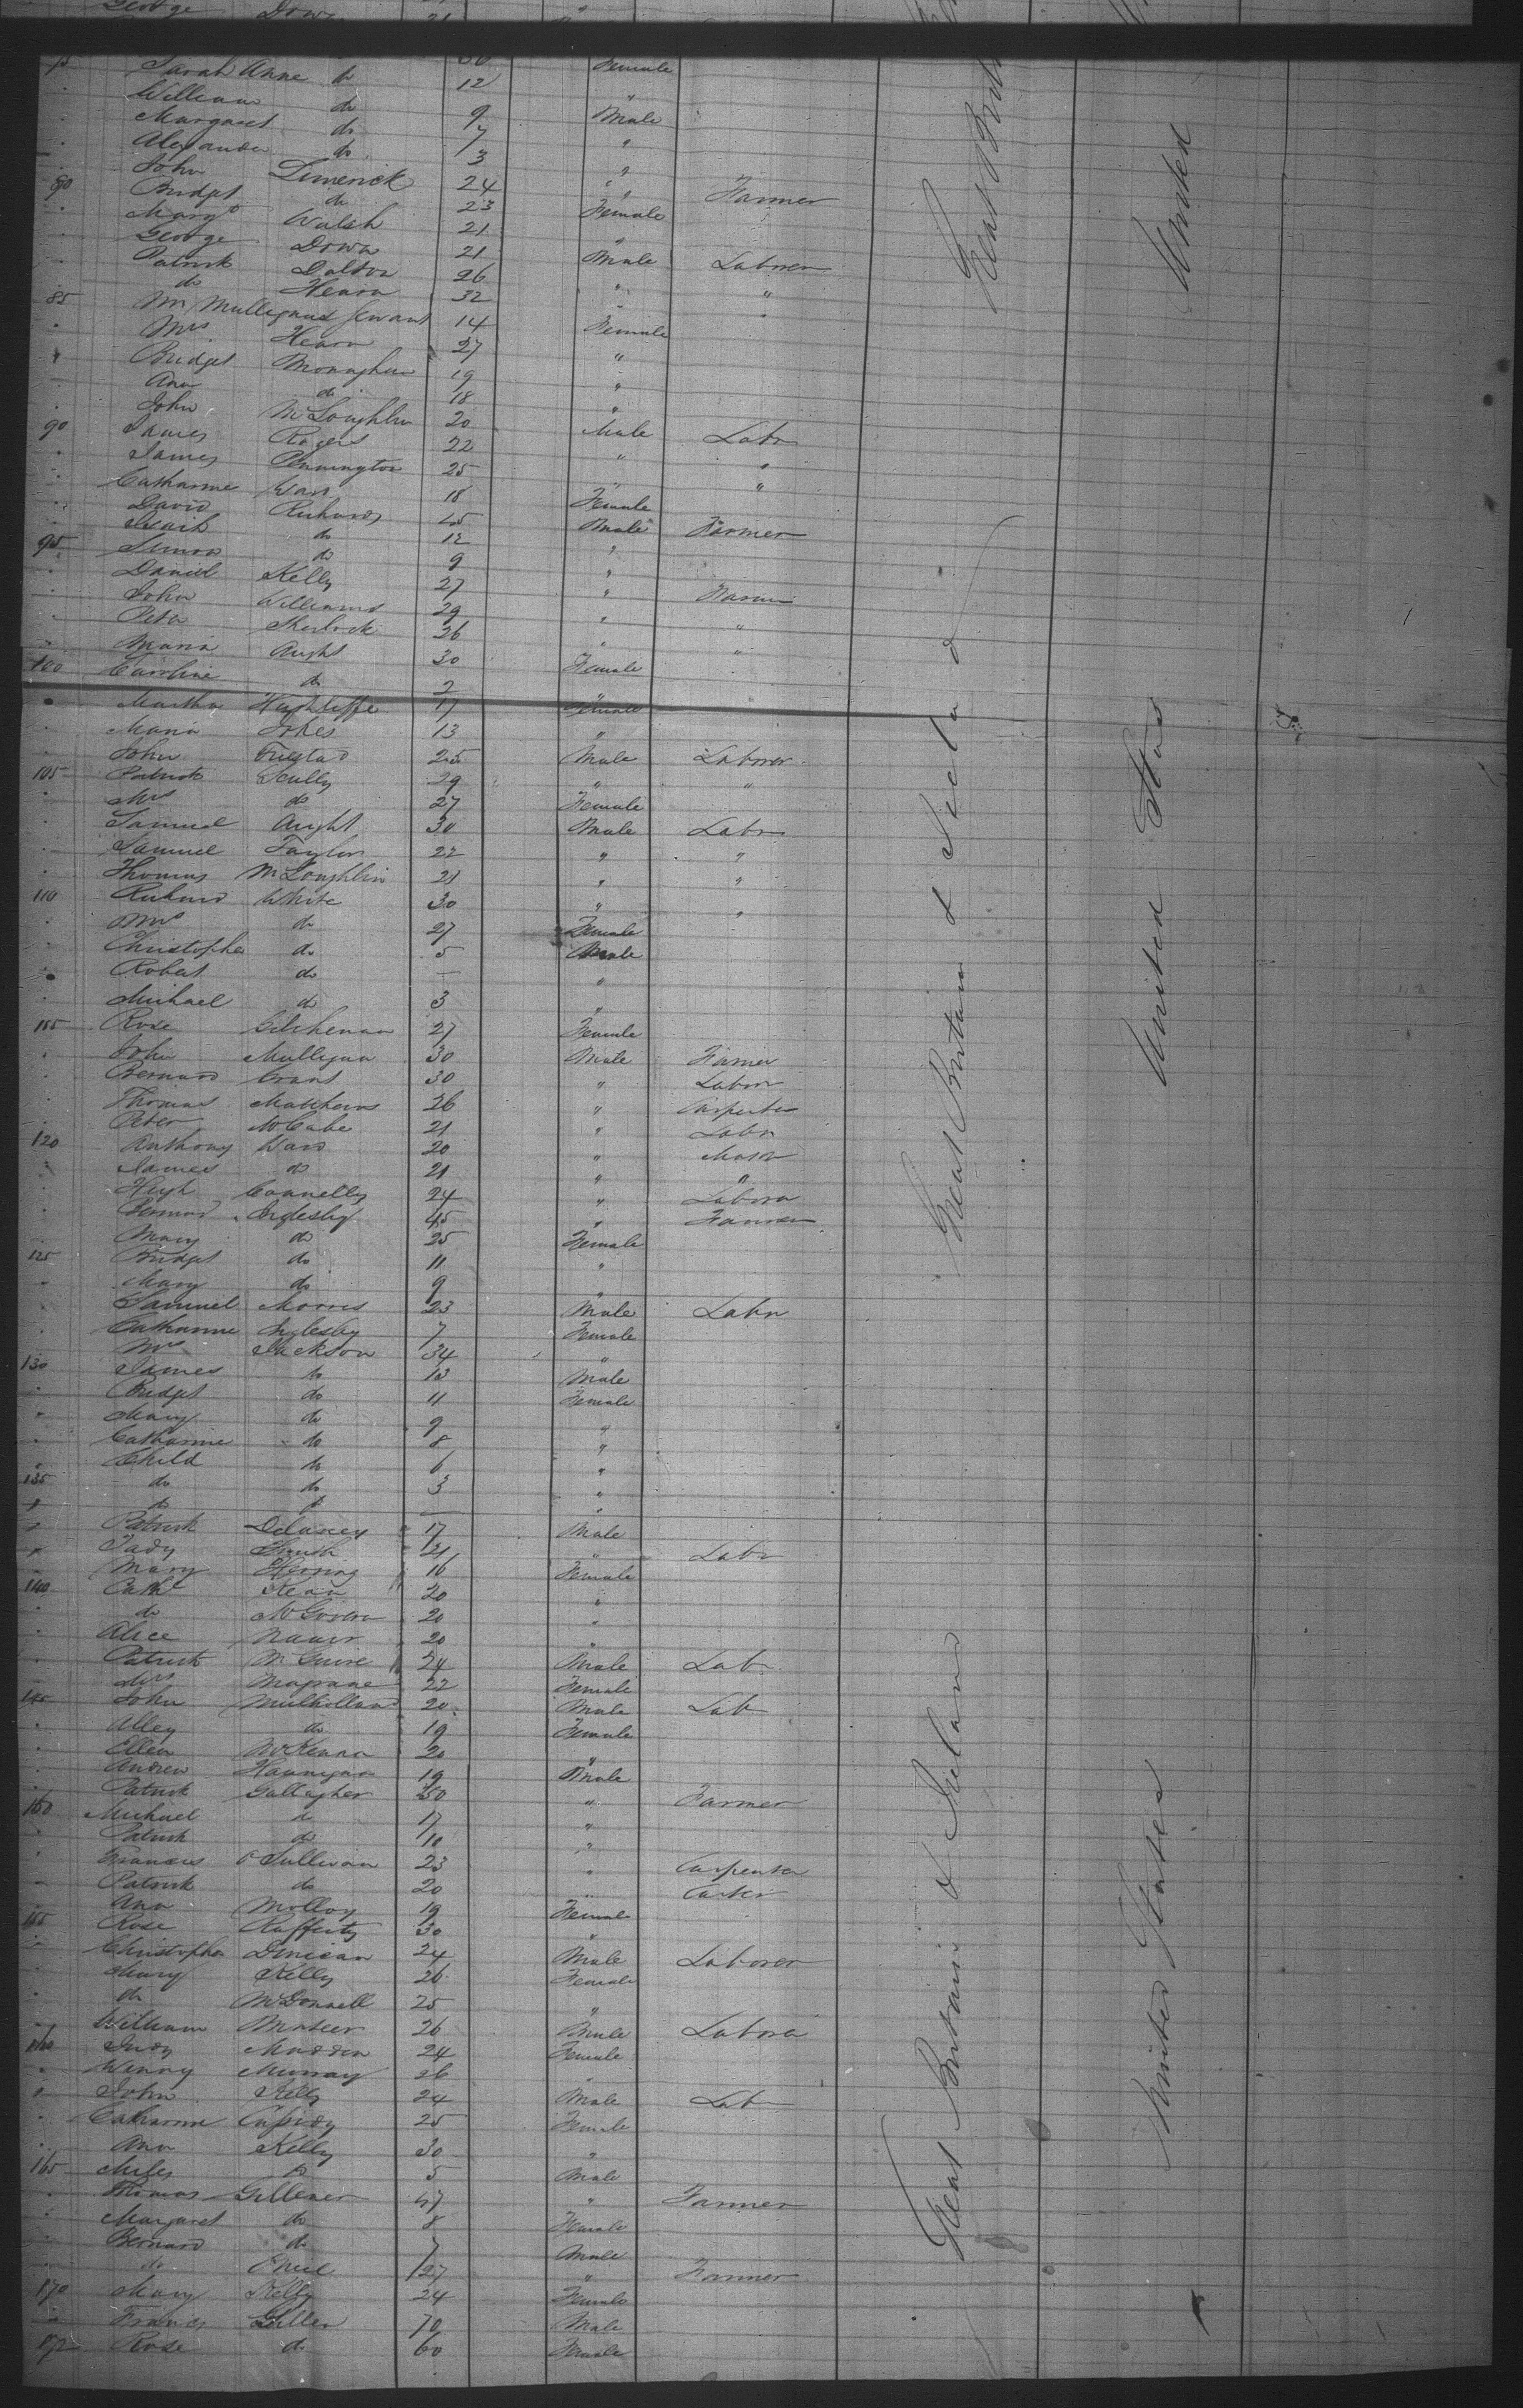 George Down 21
75 Sarah Anne do 12 Female
William do 9 Male
Margaret do 7 "
Alexander do 3 "
John Limerick 24 " Farmer
80 Bridget do 23 Female
Margt Walsh 21 "
George Down 21 Male Laborer
Patrick Dalton 26 " "
do Hearn 32 " "
85 Mr Mulligans Servant 14 Female
Mrs Hearn 27 "
Bridget Monaghan 19 "
Ann do 18 "
John McLoughlin 20 Male Labr
90 James Rogers 22 " "
James Pennington 25 " "
Catharine Ward 18 Female
David Richards 45 Male Farmer
do 12 "
95 Simon do 9 "
Daniel Kelly 27 " Farmer
John Williams 29 " "
Peter Sherlock 26 " "
Maria Aught 30 Female
100 Caroline do 2 "
Martha 17 Female
Maria 13 "
John 25 Male Laborer
105 Patrick Scully 29 " "
Mrs do 27 Female
Samuel Aught 30 Male Labr
Samuel Taylor 22 " "
Thomas McLoughlin 21 " "
110 Richard White 30 " "
Mrs do 27 Female
Christopher do 5 Male
Robert do — "
Michael do 3 "
115 Rose 27 Female
John Mulligan 30 Male Farmer
Bernard Grant 30 " Labor
Thomas Matthews 26 " Carpenter
Peter McCabe 21 " Labr
120 Anthony Ward 20 " Mason
James do 21 " "
Hugh Connelly 24 " Laborer
Bernard Inglesby 45 " Farmer
Mary do 25 Female
125 Bridget do 11 "
Mary do 9 "
Samuel Morris 23 Male Labr
Catharine Inglesby 7 Female
Mrs Jackson 34 "
130 James do 13 Male
Bridget do 11 Female
Mary do 9 "
Catharine do 8 "
Child do 6 "
135 do do 3 "
do do — "
Patrick Delaney 17 Male
Tady Smith 21 " Labr
Mary Herring 16 Female
140 Cathe Kean 20 "
do McGovern 20 "
Alice 20 "
Patrick McGuire 24 Male Lab
Mrs 22 Female
145 John Mulholland 20 Male Lab
Alley do 19 Female
Ellen McKenna 20 "
Andrew Hannigan 19 Male
Patrick Gallagher 50 " Farmer
150 Michael do 17 "
Patrick do 10 "
Francis O'Sullivan 23 " Carpenter
Patrick do 20 "
Ann Molloy 19 Female
155 Rose Rafferty 30 "
Christopher 24 Male Laborer
Mary Kelly 26 Female
do McDonnell 25 "
William 26 Male Laborer
160 Judy Madden 24 Female
Winny Murray 26 "
John Kelly 24 Male Lab
Catharine Cassidy 25 Female
Ann Kelly 30 "
165 Miles do 5 Male
Thomas 47 " Farmer
Margaret do 8 Female
Bernard do 7 Male
do 27 " Farmer
170 Mary Kelly 24 Female
Francis 70 Male
172 Rose do 60 Female
Great Britain & Ireland
United States
Great Britain & Ireland
United States
Great Brit
United